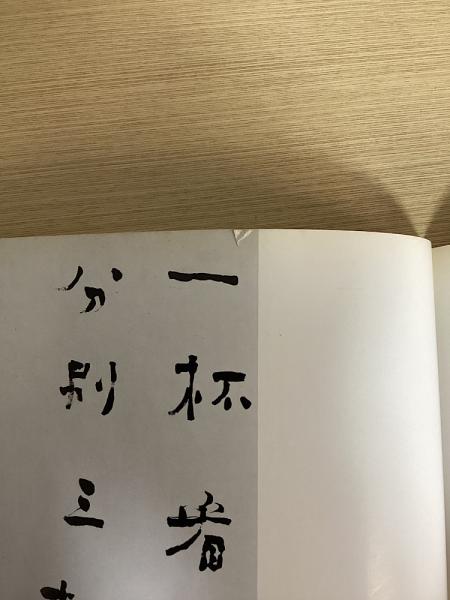 一杯看
分别三